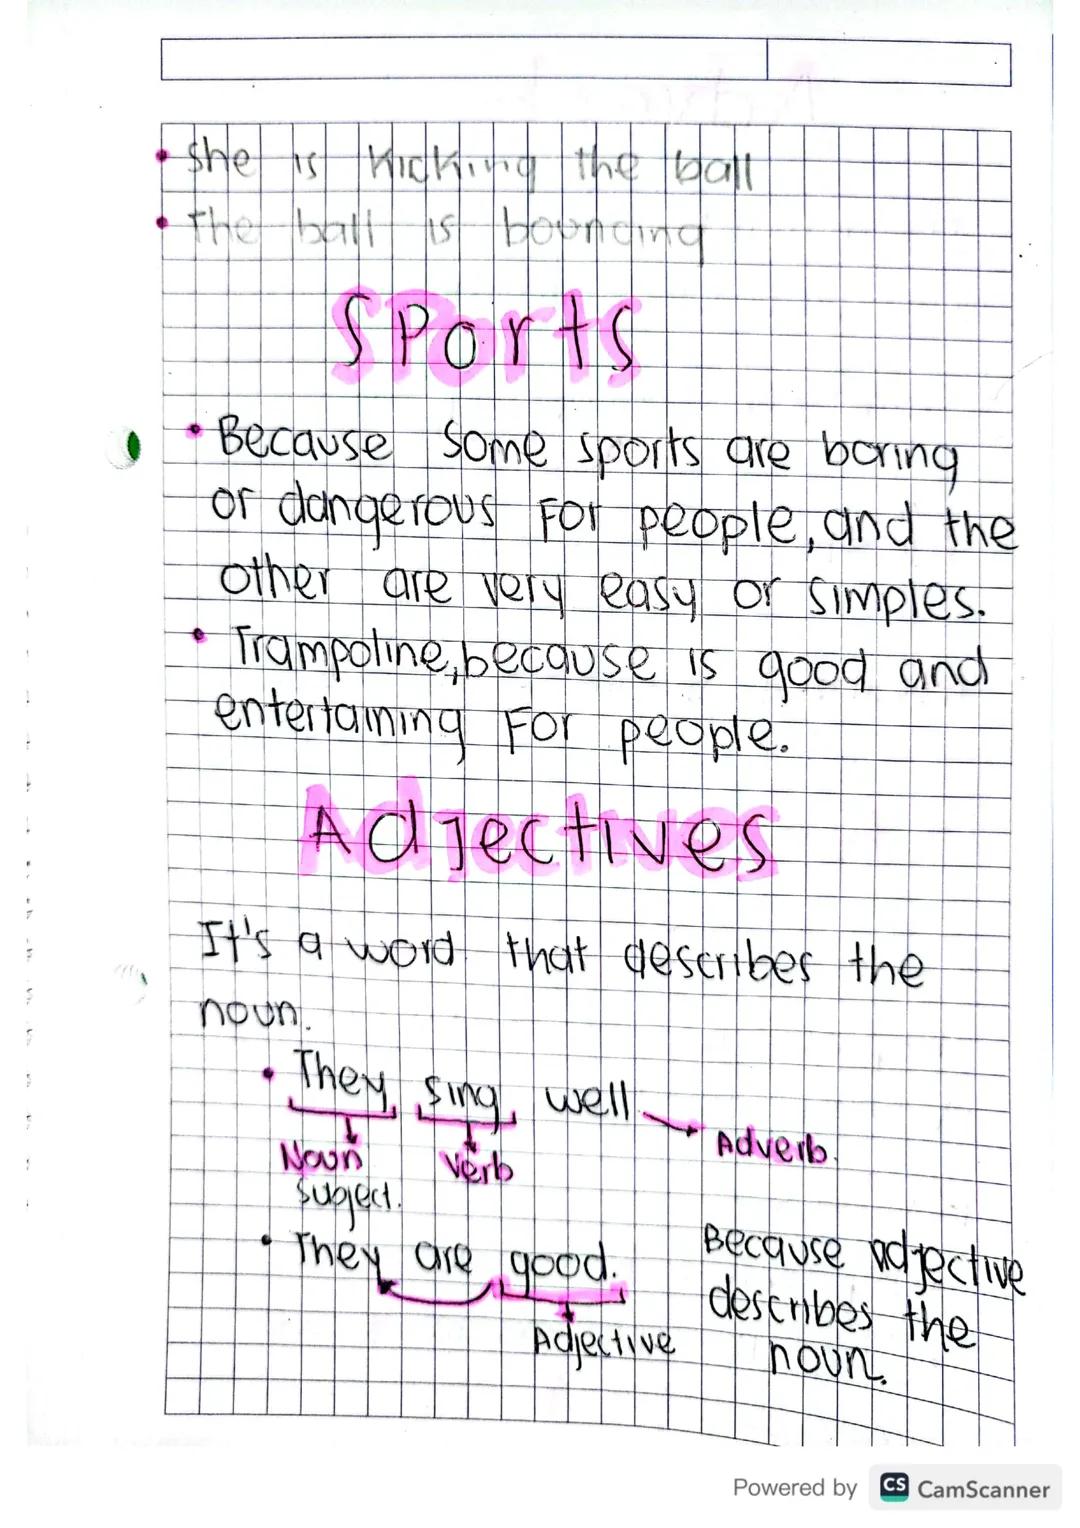 • She is Kicking the ball
• The ball is bouncing
Sports
• Because some sports are boring
or dangerous For people, and the
other are very easy or simples.
• Trampoline, because is good and
entertaining For people.
Adjectives
It's a word that describes the
noun.
• They sing well
Adverb
Noun Verb
Subject.
• They are good.
Adjective
Because adjective
describes the
noun.
Powered by CS CamScanner